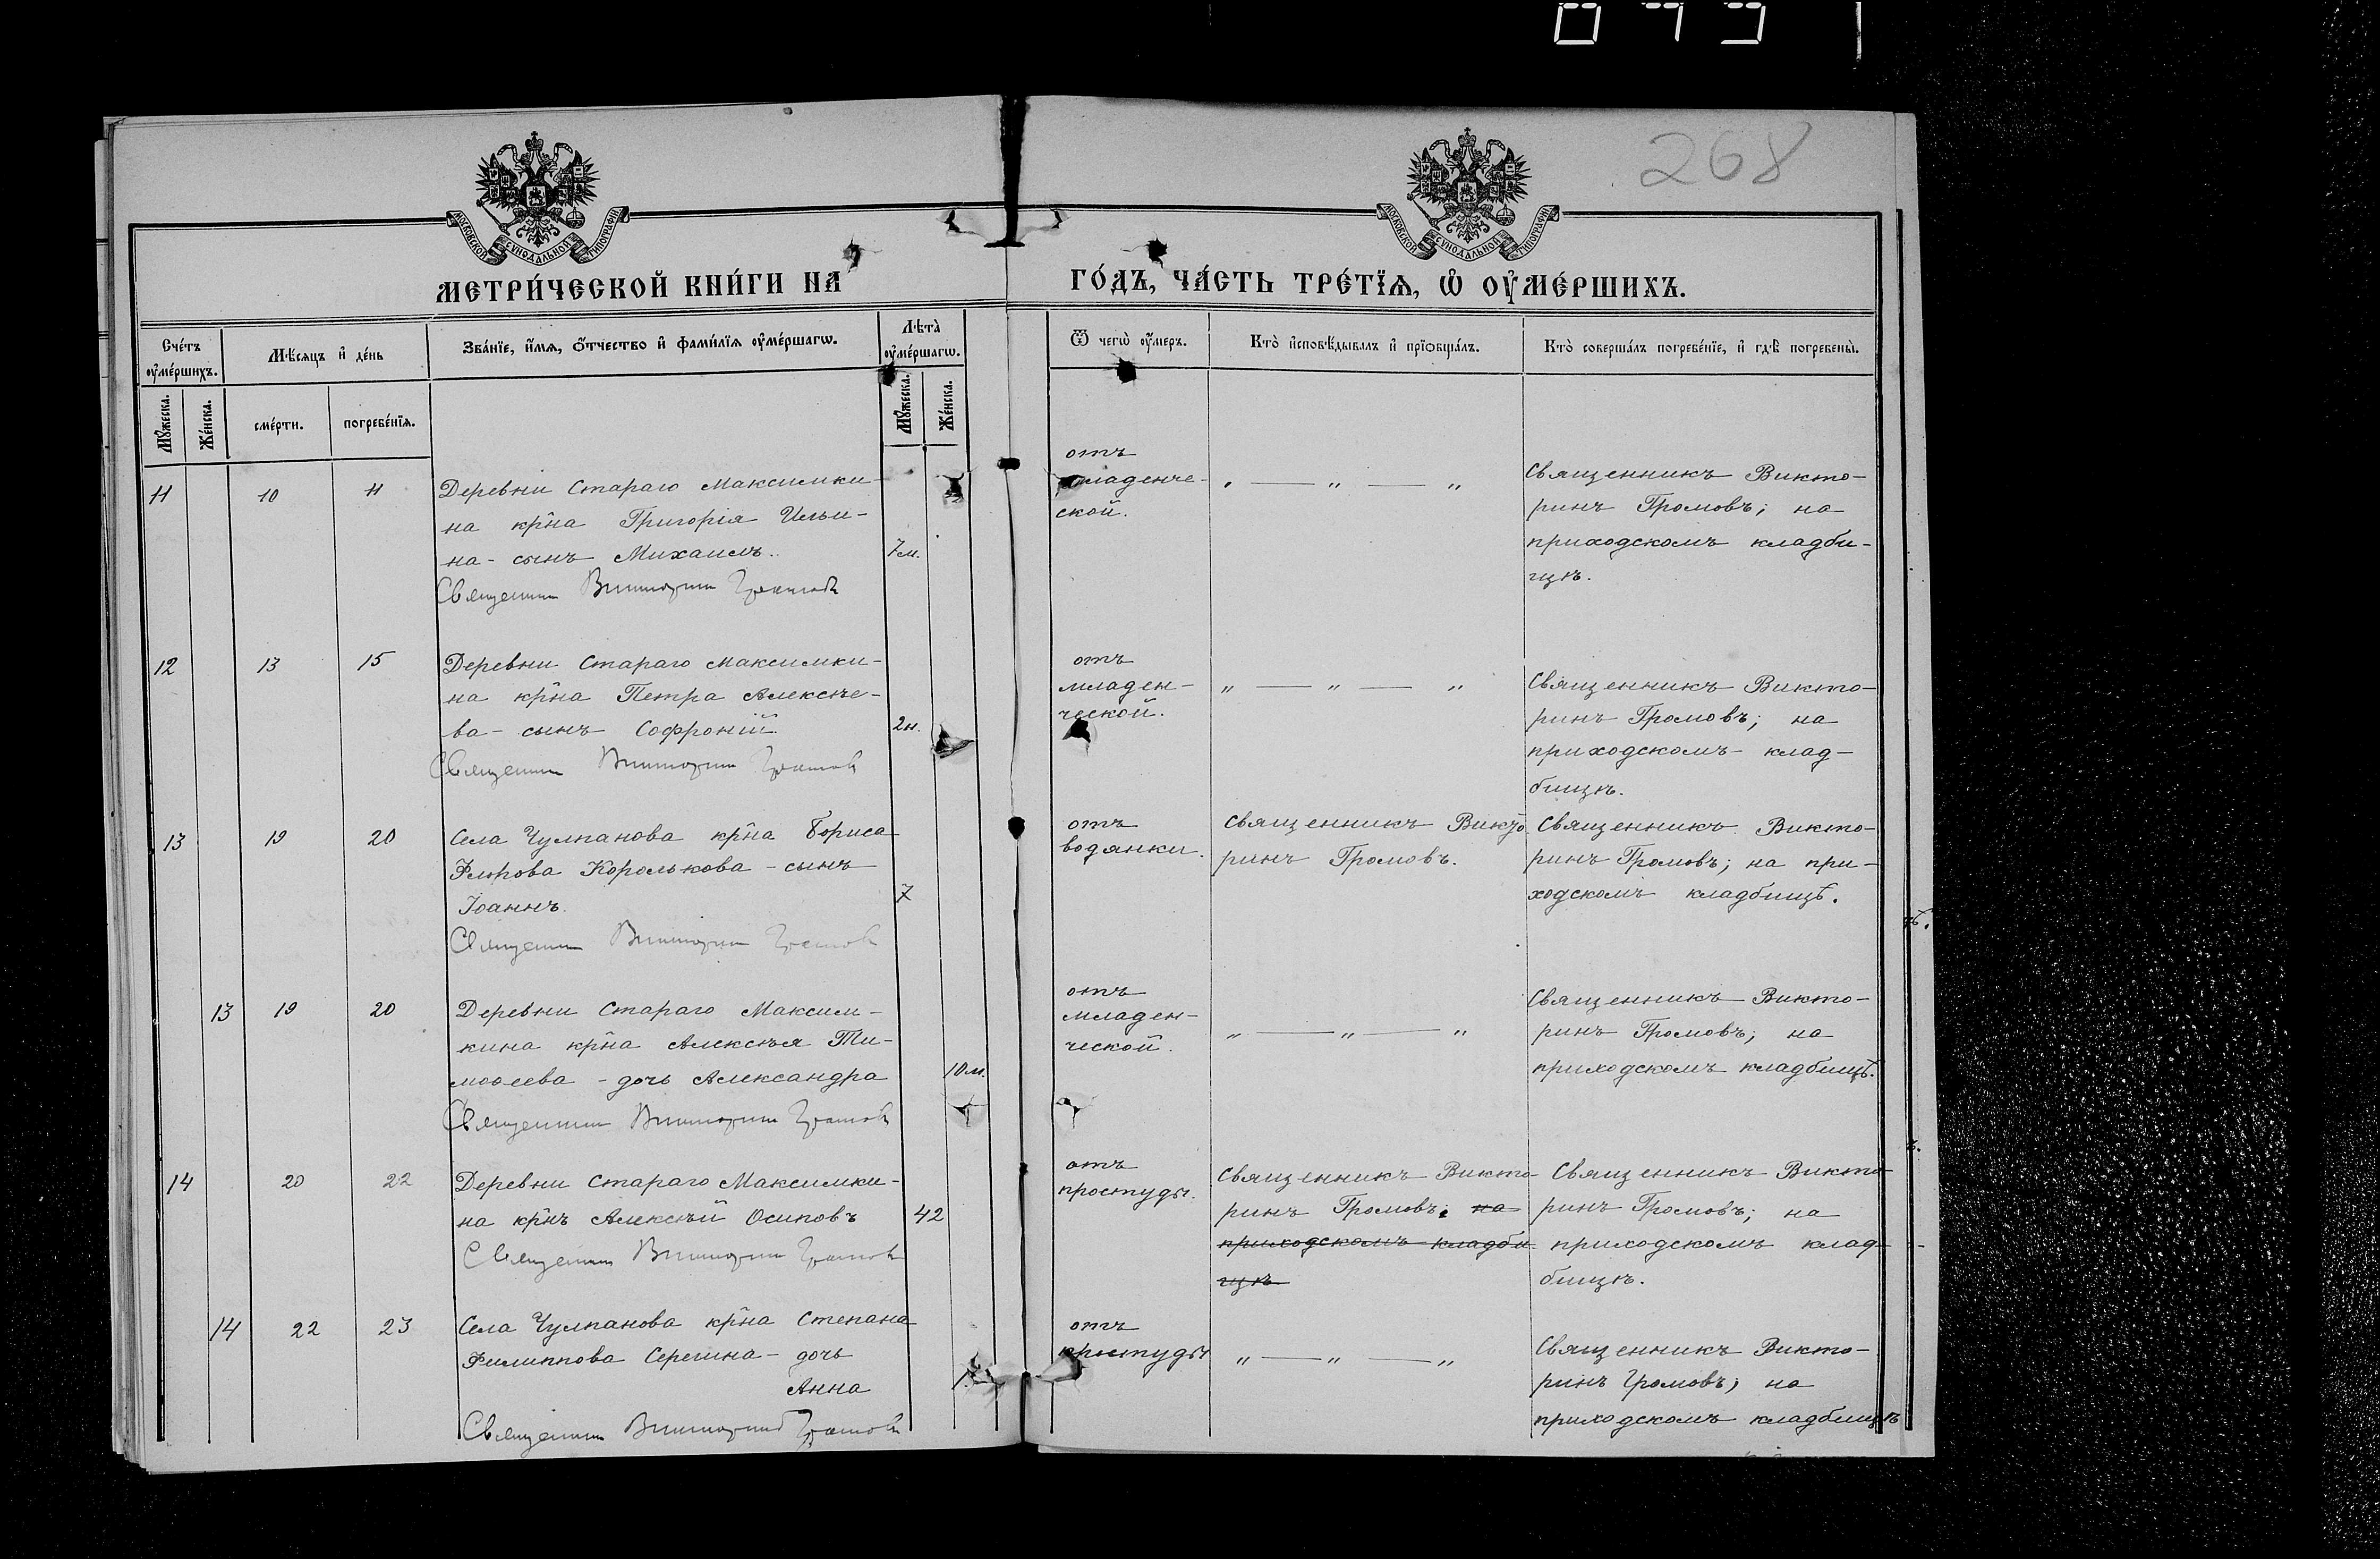 268
МОСКОВСКОЙ СѴНОДАЛЬНОЙ ТИПОГРАФІИ
МОСКОВСКОЙ СѴНОДАЛЬНОЙ ТИПОГРАФІИ
МЕТРИ́ЧЕСКОЙ КНИ́ГИ НА ГО́ДЪ, ЧА́СТЬ ТРЕ́ТЇѦ, Ѡ҆ ОУ҆МЕ́РШИХЪ.
Сче́тъ оу҆ме́ршихъ.
Мѣ́сѧцъ и҆ де́нь
Зва́нїе, и҆́мѧ, ѻ҆́тчество и҆ фами́лїѧ оу҆ме́ршагѡ.
Лѣ́та оу҆ме́ршагѡ.
Ѿ чегѡ̀ оу҆́меръ.
Кто̀ и҆сповѣ́дывалъ и҆ прїѡбща́лъ.
Кто̀ соверша́лъ погребе́нїе, и҆ гдѣ̀ погребены̀.
Мꙋ́жеска.
Же́нска.
сме́рти.
погребе́нїѧ.
Мꙋ́жеска.
Же́нска.
11 10 11
Деревни Стараго Максимки-
на кр̃на Григорія Ильи-
на - сынъ Михаилъ. 7 м.
Священник Викторин Громов
отъ
младенче-
ской.
„ — „ — „
Священникъ Викто-
ринъ Громовъ; на
приходскомъ кладби-
щѣ.
12 13 15
Деревни Стараго Максимки-
на кр̃на Петра Алексѣе-
ва - сынъ Софроній. 2 н.
Священник Викторин Громов
отъ
младен-
ческой.
„ — „ — „
Священникъ Викто-
ринъ Громовъ; на
приходскомъ клад-
бищѣ.
13 19 20
Села Чулпанова кр̃на Бориса
Флорова Королькова - сынъ
Іоаннъ. 7
Священник Викторин Громов
отъ
водянки.
Священникъ Викто
ринъ Громовъ.
Священникъ Викто-
ринъ Громовъ; на при-
ходскомъ кладбищѣ.
13 19 20
Деревни Стараго Максим-
кина кр̃на Алексѣя Ти-
моѳеева - дочь Александра 10 м.
Священник Викторин Громов
отъ
младен-
ческой.
„ — „ — „
Священникъ Викто-
ринъ Громовъ; на
приходскомъ кладбищѣ.
14 20 22
Деревни Стараго Максимки-
на кр̃нъ Алексѣй Осиповъ 42
Священник Викторин Громов
отъ
простуды.
Священникъ Викто-
ринъ Громовъ; на
приходскомъ кладби
щѣ
Священникъ Викто-
ринъ Громовъ; на
приходскомъ клад-
бищѣ.
14 22 23
Села Чулпанова кр̃на Степана
Филиппова Серегина - дочь
Анна
Священник Викторин Громов
отъ
простуды
„ — „ — „
Священникъ Викто-
ринъ Громовъ; на
приходскомъ кладбищѣ